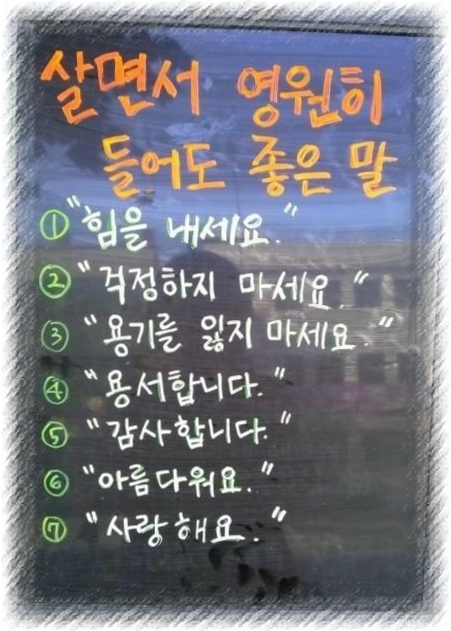 살면서 영원히
들어도 좋은 말
① "힘을 내세요."
② "걱정하지 마세요."
③ "용기를 잃지 마세요."
④ "용서합니다."
⑤ "감사합니다."
⑥ "아름다워요."
⑦ "사랑해요."